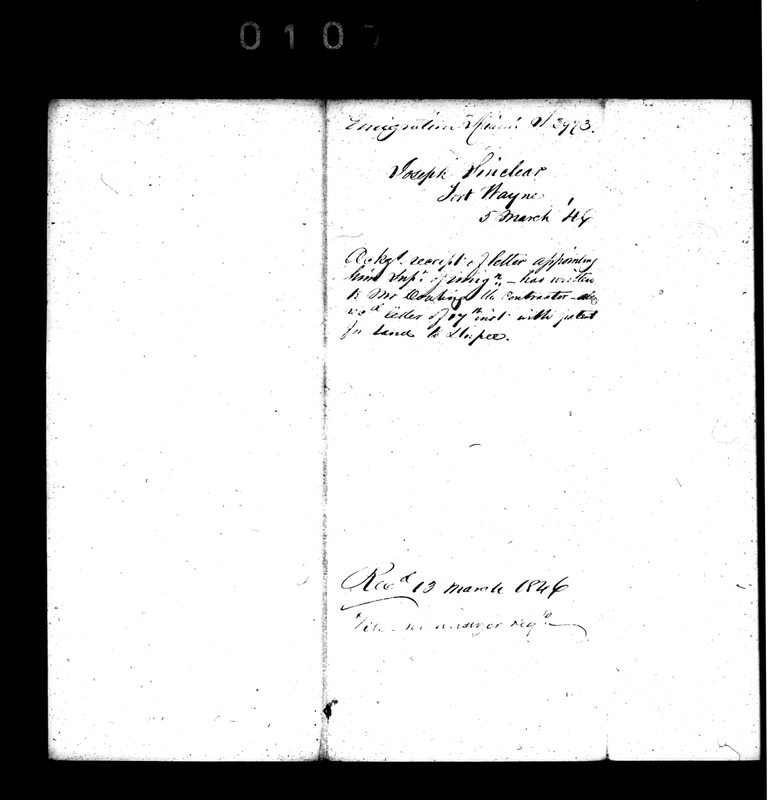 0107
Emigration Miami S. 3973.
Joseph Sinclear
Fort Wayne
5 March '46
Ackgs. receipt of letter appointing
him Supt. of emign. – has written
to Mr the Contractor – also
recd letter of 17th inst with patent
for land to
Recd 13 March 1846
File no answer reqd